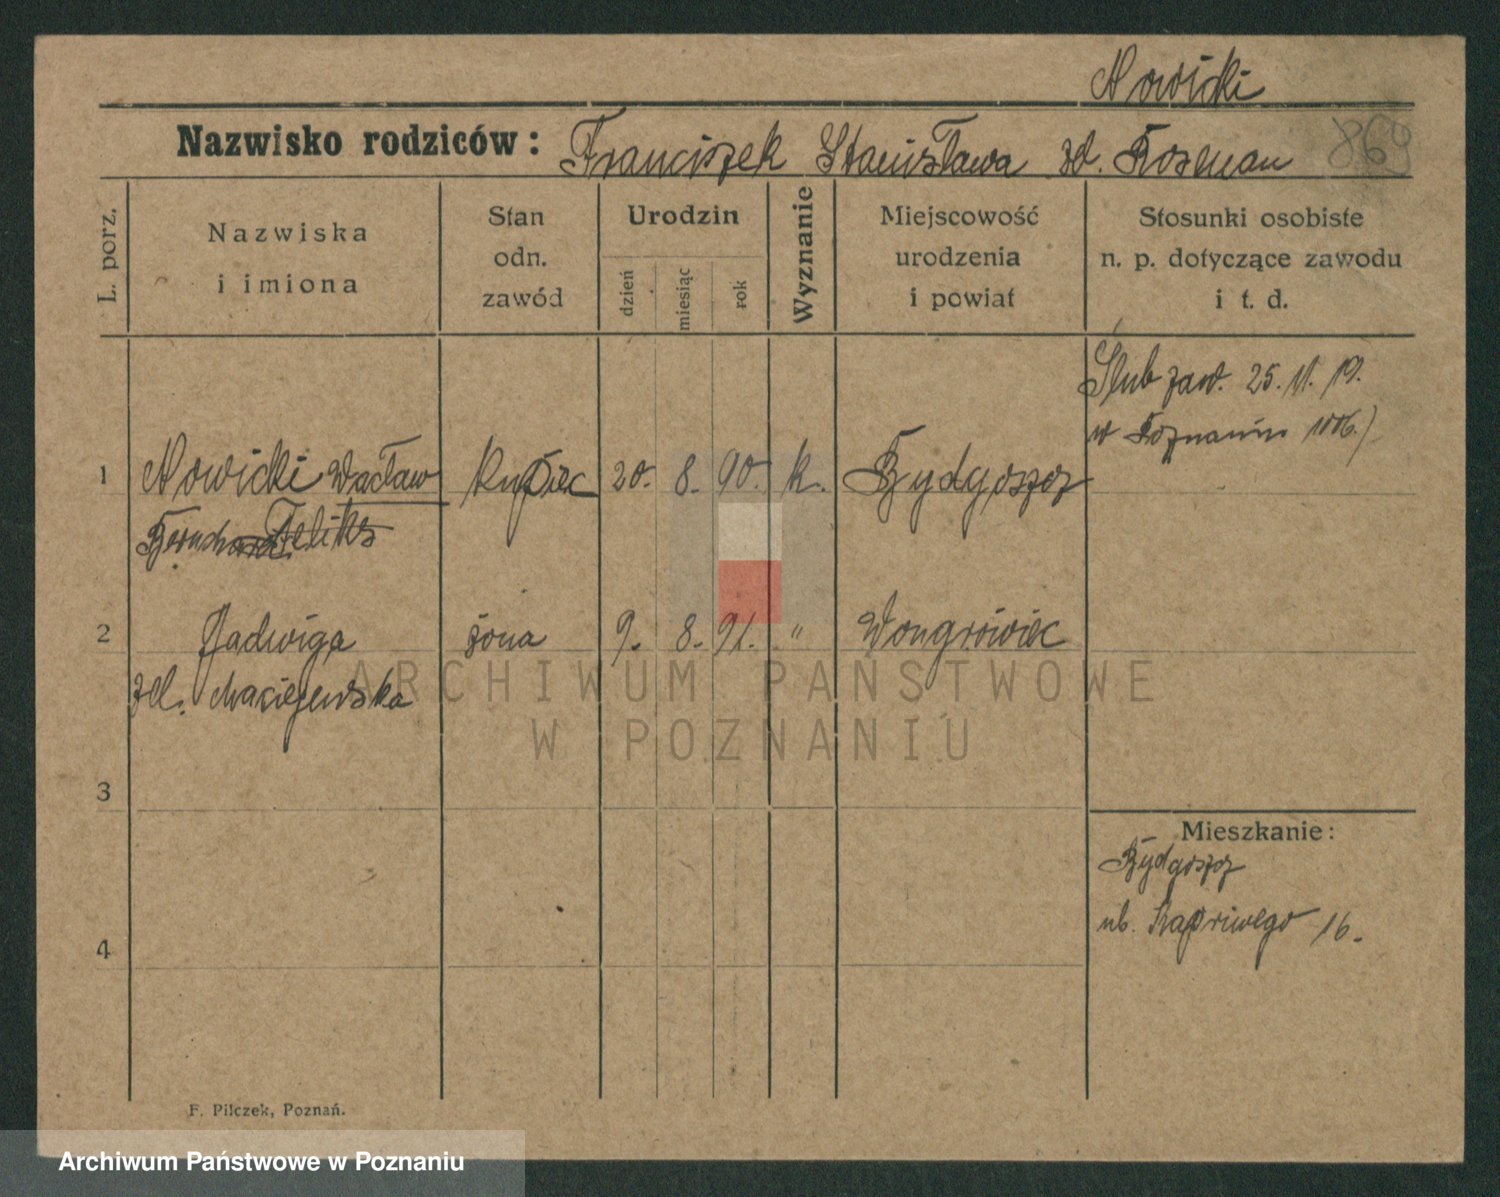 Nowicki
Nazwisko rodziców: Franciszek Stanisława zd. Rosenau
869
L. porz.
Nazwiska i imiona
Stan odn. zawód
Urodzin
dzień
miesiąc
rok
Wyznanie
Miejscowość urodzenia i powiat
Stosunki osobiste n. p. dotyczące zawodu i t. d.
Ślub zaw. 25. 11. 19.
w Poznaniu 1106.)
1 Nowicki Wacław kupiec 20. 8. 90. k. Bydgoszcz
Feliks
2 Jadwiga żona 9. 8. 91. " Wongrówiec
zd. Maciejewska
ARCHIWUM PAŃSTWOWE
W POZNANIU
3
Mieszkanie:
Bydgoszcz
ul. Kapriwego 16.
4
F. Pilczek, Poznań.
Archiwum Państwowe w Poznaniu